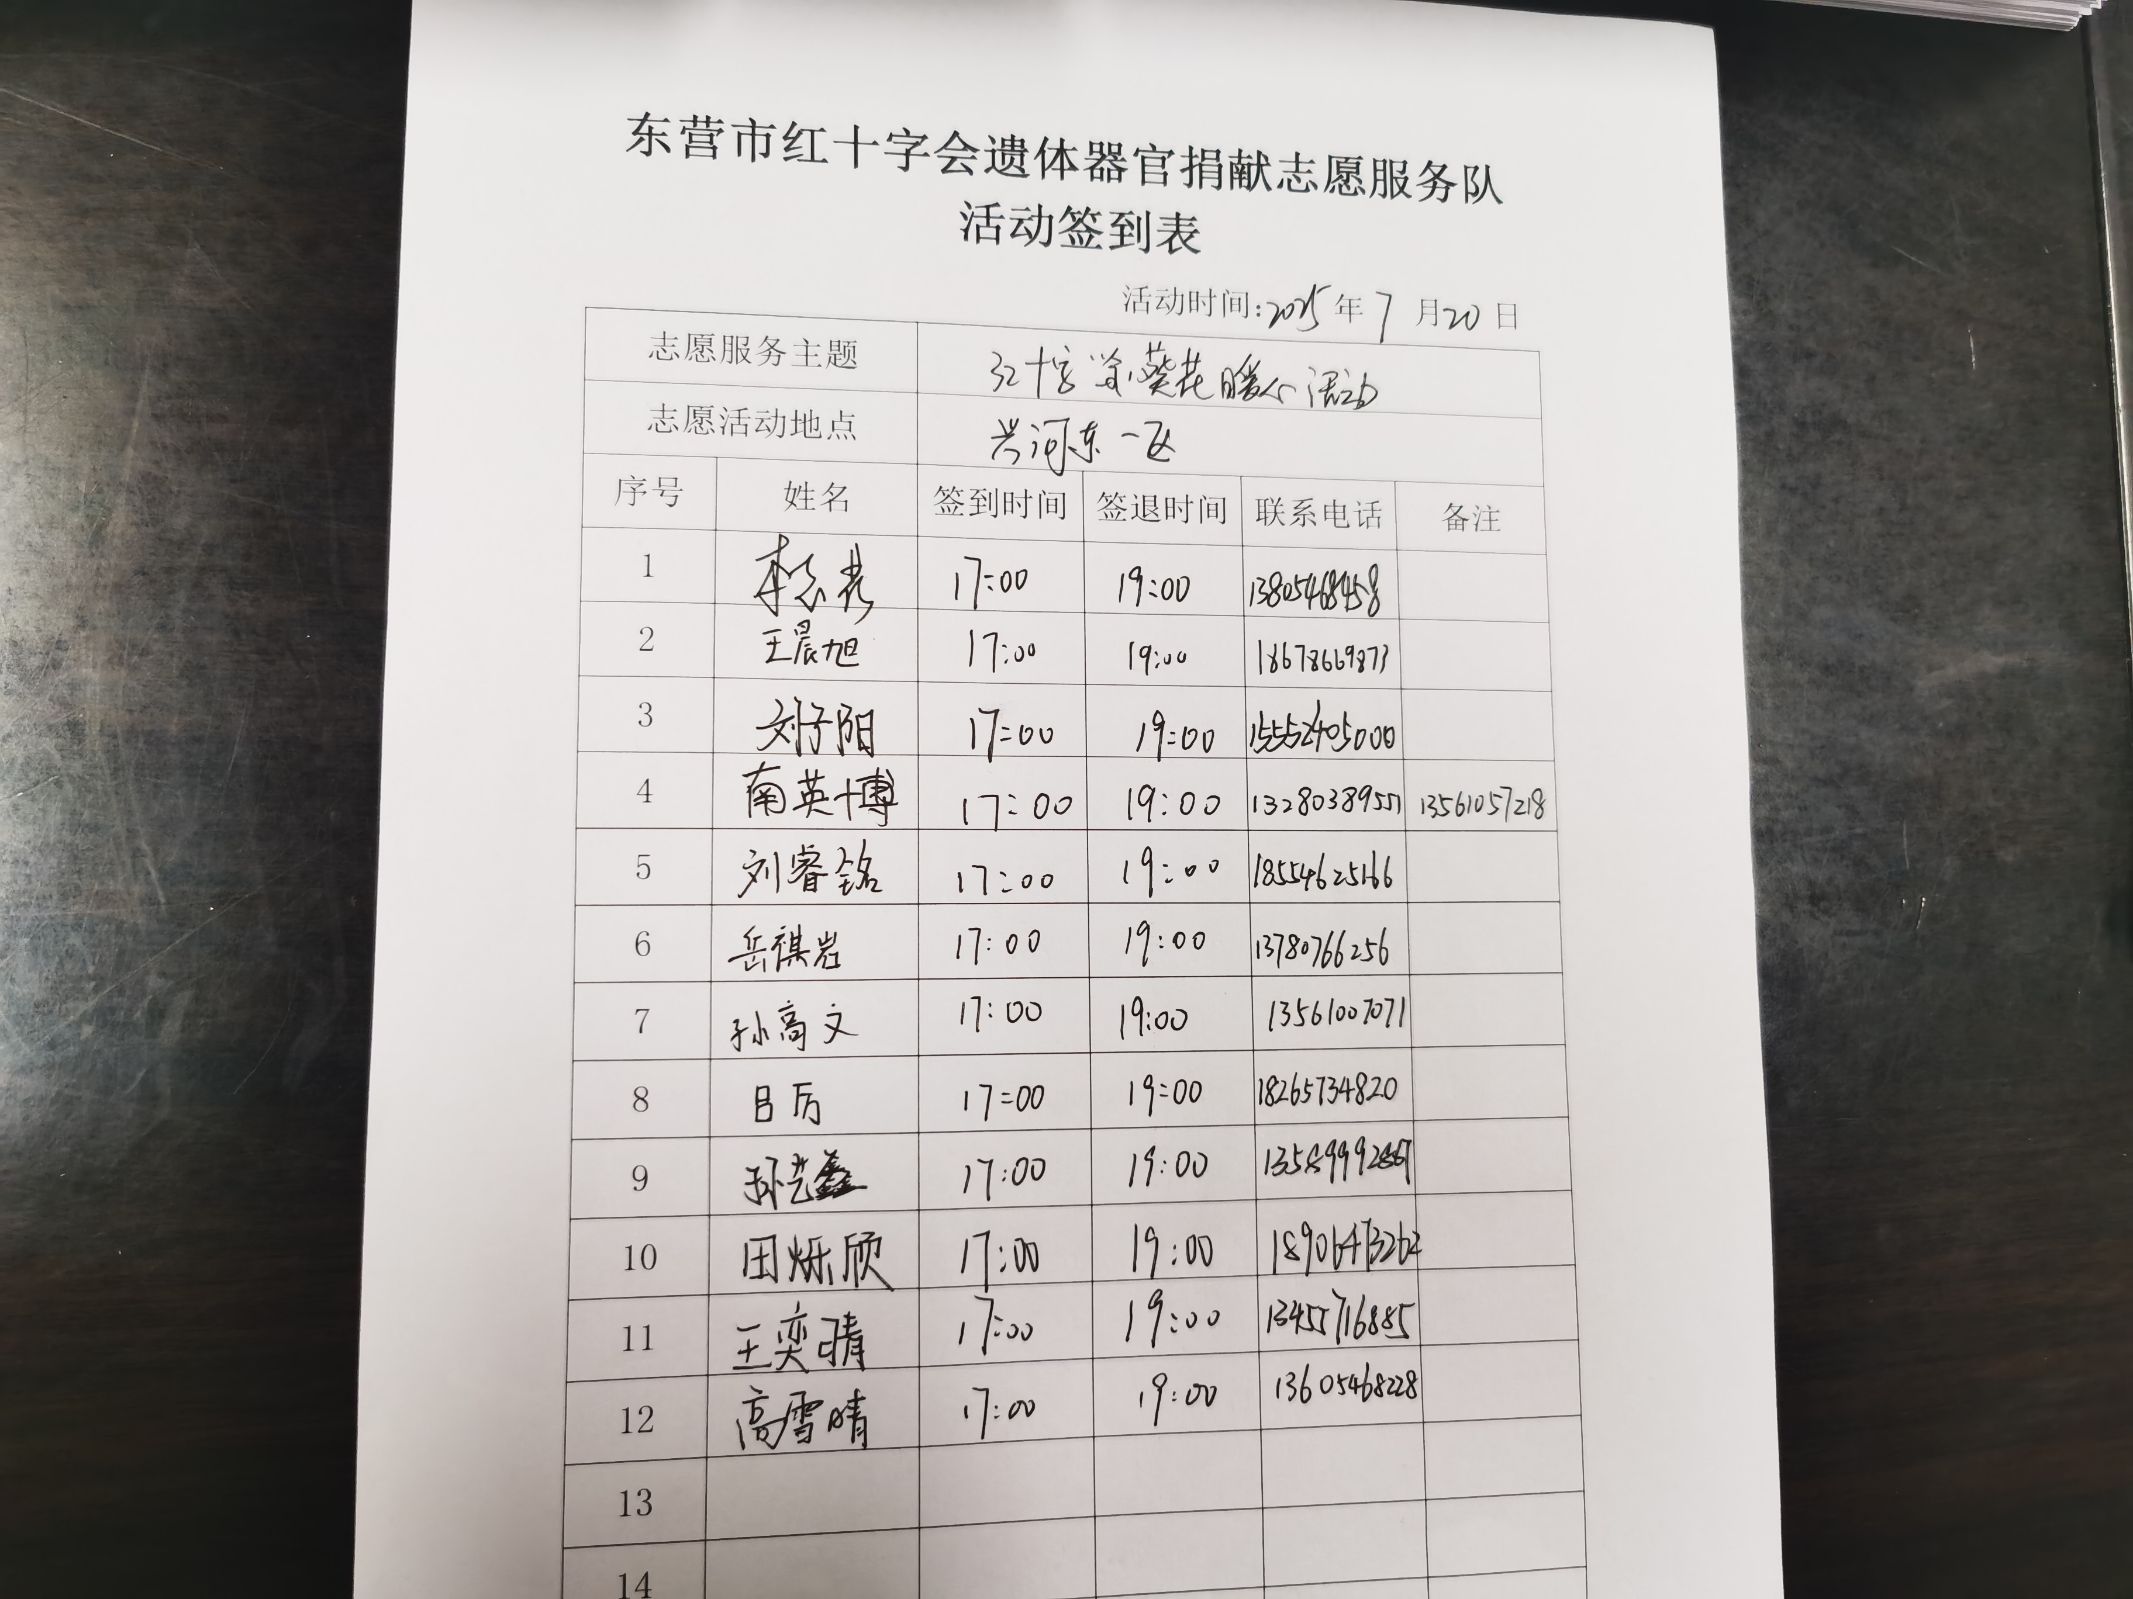 东营市红十字会遗体器官捐献志愿服务队
活动签到表
活动时间:2025年7月20日
志愿服务主题 红十字 葵花暖心活动
志愿活动地点 兴河东一区
序号 姓名 签到时间 签退时间 联系电话 备注
1 李 17:00 19:00 13805468458
2 王晨旭 17:00 19:00 18678669873
3 刘子阳 17:00 19:00 15552405000
4 南英博 17:00 19:00 13280389551 13561057218
5 刘睿铭 17:00 19:00 18554625166
6 岳祺岩 17:00 19:00 13780766256
7 孙高文 17:00 19:00 13561007071
8 吕厉 17:00 19:00 18265734820
9 孙艺鑫 17:00 19:00
10 田烁欣 17:00 19:00 18906473262
11 王奕晴 17:00 19:00 13455716885
12 高雪晴 17:00 19:00 13605468228
13
14